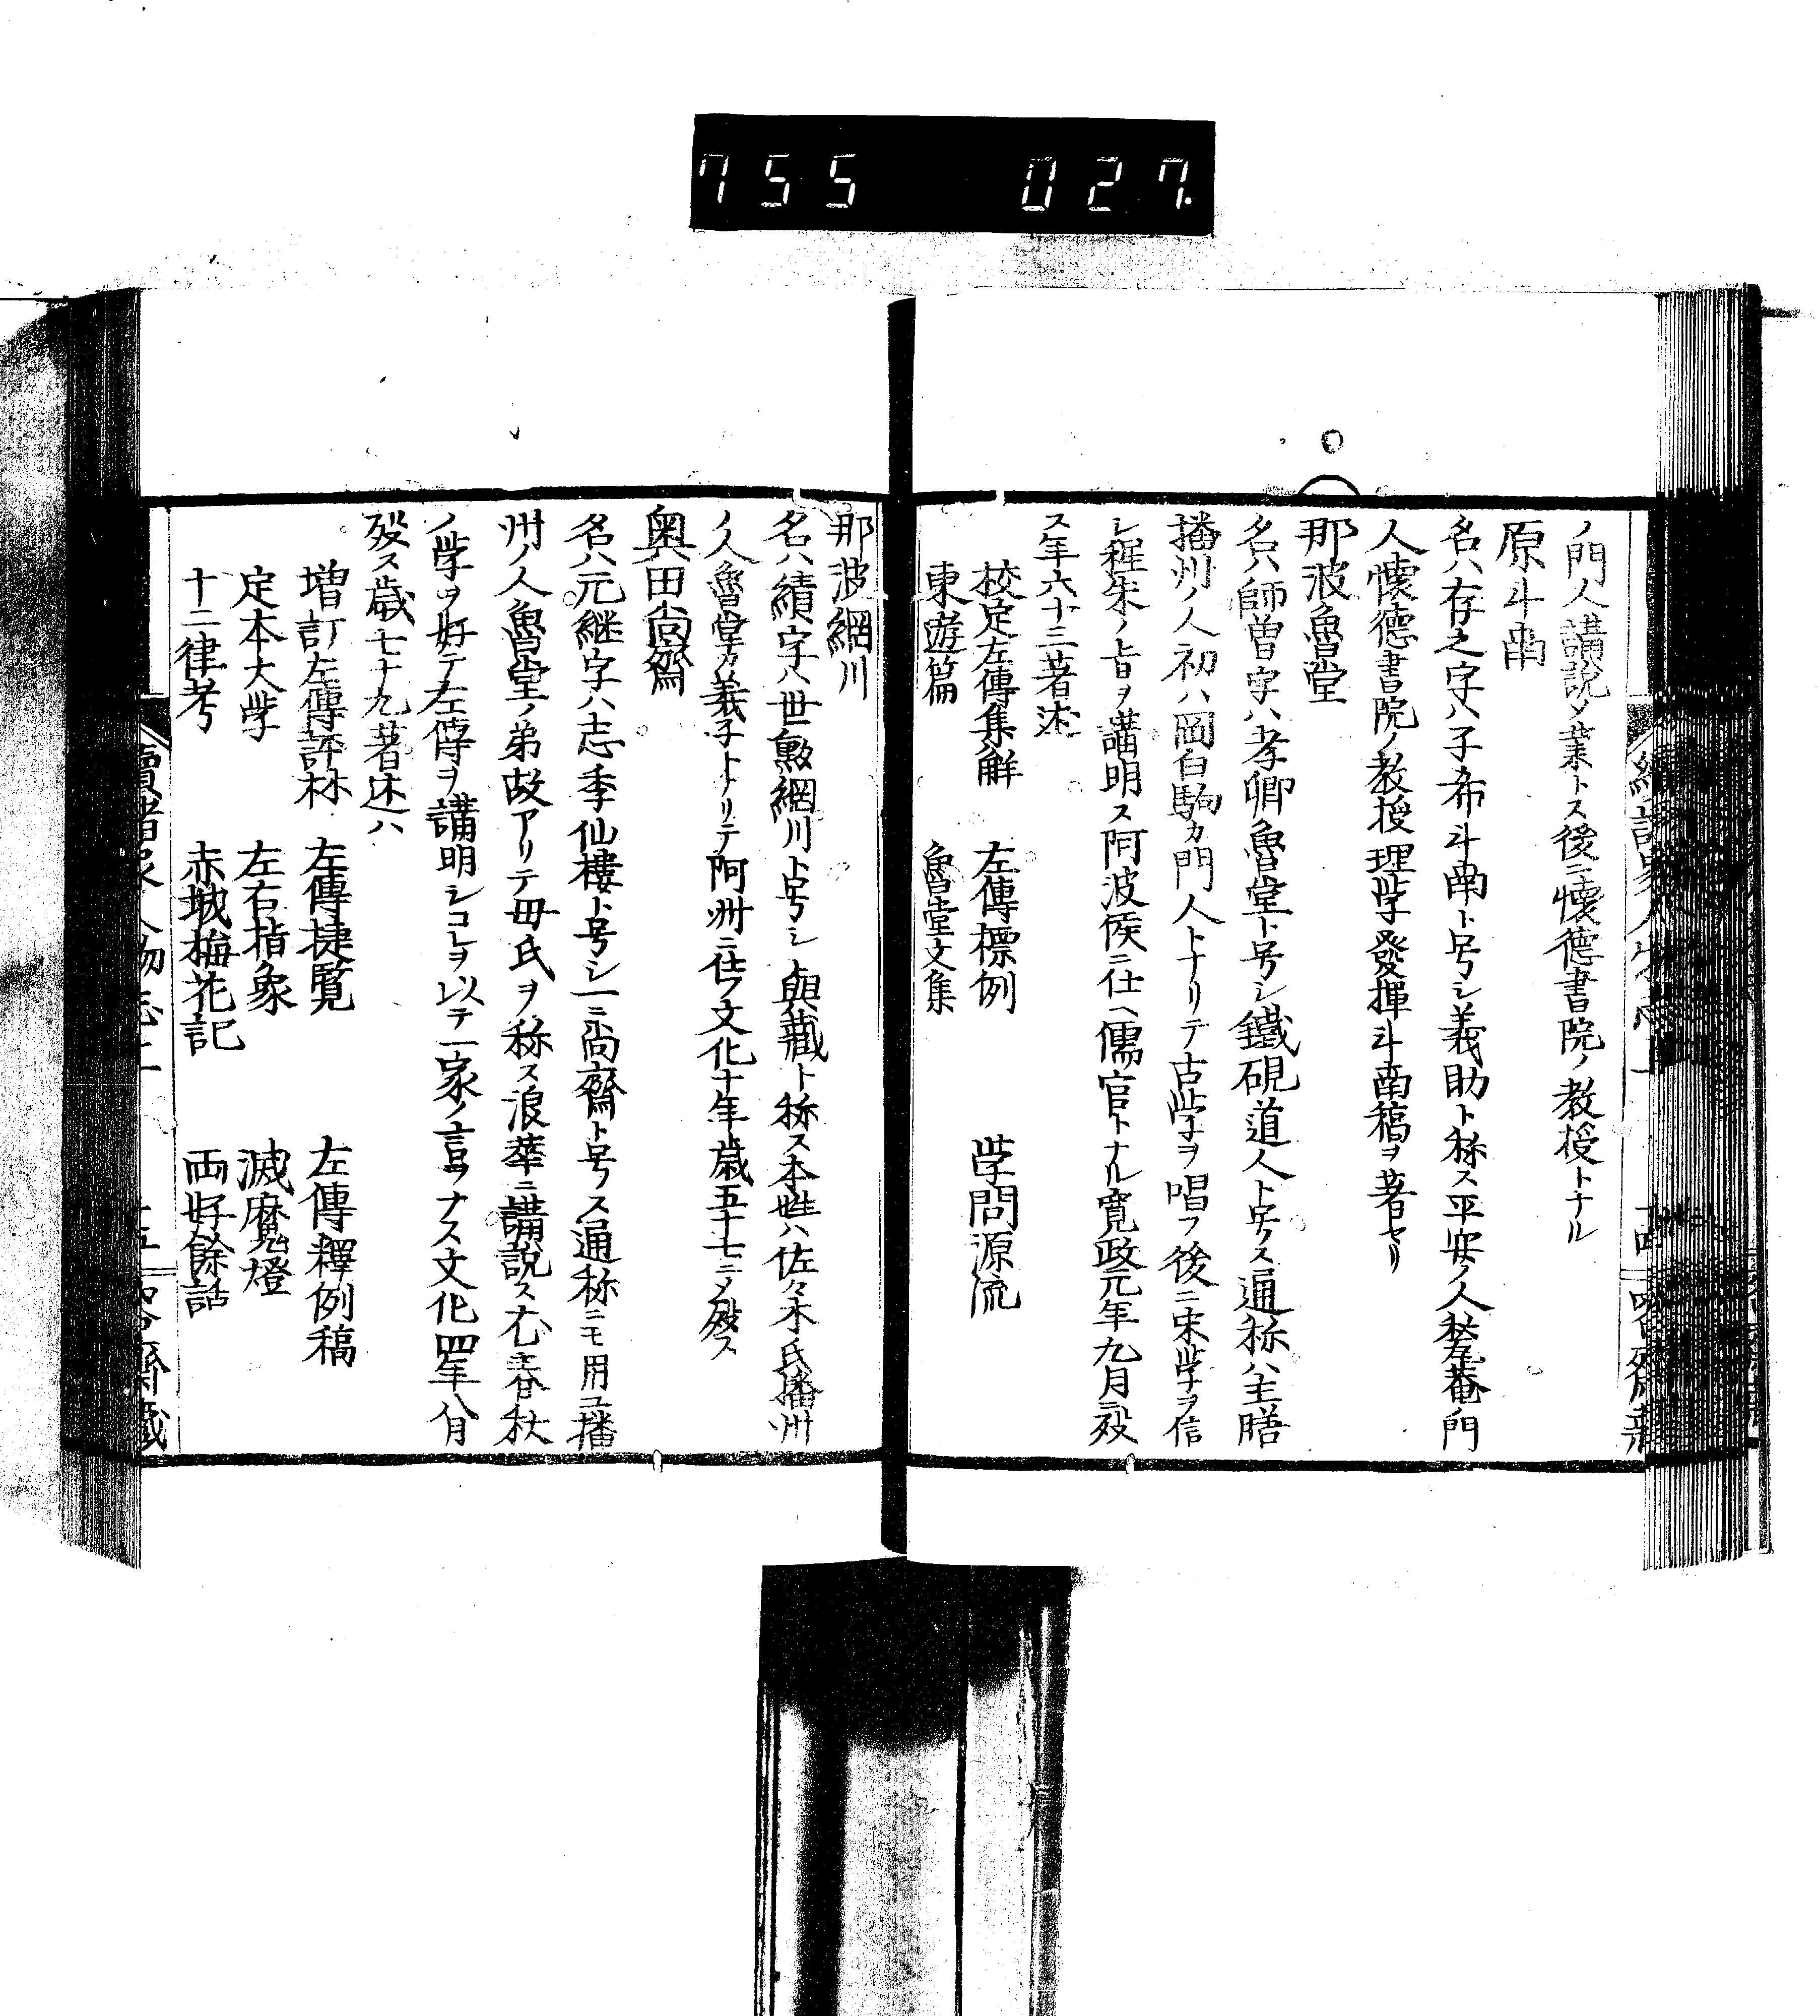 755 027.
ノ門人講説ヲ業トス後ニ懐德書院ノ教授トナル
原斗南
名ハ存之字ハ子布斗南ト号シ義助ト称ス平安ノ人愁菴門
人懐德書院ノ教授理学發揮斗南稿ヲ著セリ
那波魯堂
名ハ師曽字ハ孝卿魯堂ト号シ鐵硯道人ト号ス通称ハ主膳
播州ノ人初ハ岡白駒カ門人トナリテ古学ヲ唱フ後ニ宋学ヲ信
シ程朱ノ旨ヲ講明ス阿波侯ニ仕ヘ儒官トナル寛政元年九月歿
ス年六十三著述
校定左傳集解 左傳標例 学問源流
東遊篇 魯堂文集
那波網川
名ハ績字ハ世勲網川ト号シ與藏ト称ス本姓ハ佐々木氏播州
ノ人魯堂カ義子トナリテ阿州ニ仕フ文化十年歳五十七ニメ歿ス
奥田尚齋
名ハ元継字ハ志季仙樓ト号シ一ニ尚齋ト号ス通称ニモ用ユ播
州ノ人魯堂ノ弟故アリテ毋氏ヲ称ス浪華ニ講説ス尤春秋
ノ学ヲ好テ左傳ヲ講明シコレヲ以テ一家ノ言ヲナス文化四年八月
歿ス歳七十九著述ハ
増訂左傳評林 左傳捷覧 左傳釋例稿
定本大学 左右指象 滅魔燈
十二律考 赤城梅花記 両好餘話
續諸家人物志二